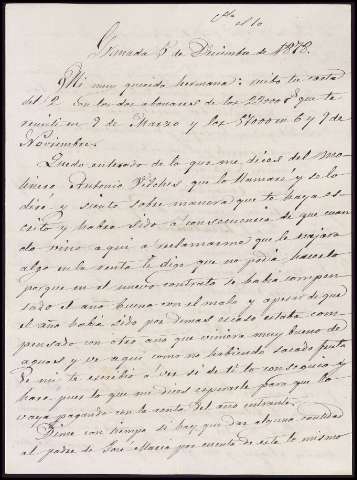 el 10
Granada 6 de Diciembre de 1878.
Mi muy querida hermana: recibo tu carta
del 2 con los dos abonares de los 22000 rs que te
remití en 7 de Marzo y los 37000 en 6 y 9 de
Noviembre.
Quedo enterado de lo que me dices del mo-
linero Antonio Vilches que lo llamaré y se lo
diré y siento sobre manera que te haya es-
crito y habrá sido a consecuencia de que cuan-
do vino aquí a reclamarme que le rajara
algo en la renta le dije que no podía hacerlo
porque en el nuevo contrato se había compen-
sado el año bueno con el malo y apesar de que
el año había sido por demas escaso estaba com-
pensado con otro año que viniera muy bueno de
aguas y ve aquí como no habiendo sacado fruto
de mí te escribió a ver si de ti lo conseguía y
haré pues lo que me dices esperarle para que lo
vaya pagando con la renta del año entrante.
Dime con tiempo si hay que dar alguna cantidad
al padre de José María por cuenta de este lo mismo